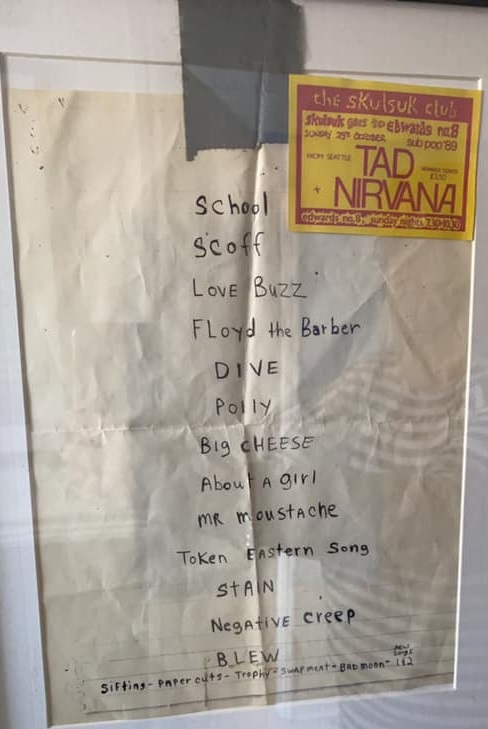 the skulsuk club
skulsuk goes to edwards no.8
SUNDAY 29th OCTOBER
sub pop '89
FROM SEATTLE
TAD
+ NIRVANA
edwards no.8, sunday nights 7.30-10.30
School
Scoff
LOVE BUZZ
FLoyd the Barber
DIVE
Polly
Big CHEESE
About A girl
MR moustache
Token Eastern Song
STAIN
NegATIVE creep
BLEW
Sifting - PAPER cuts - Trophy - SWAP MEAT - BAD moon - 1&2
new
songs